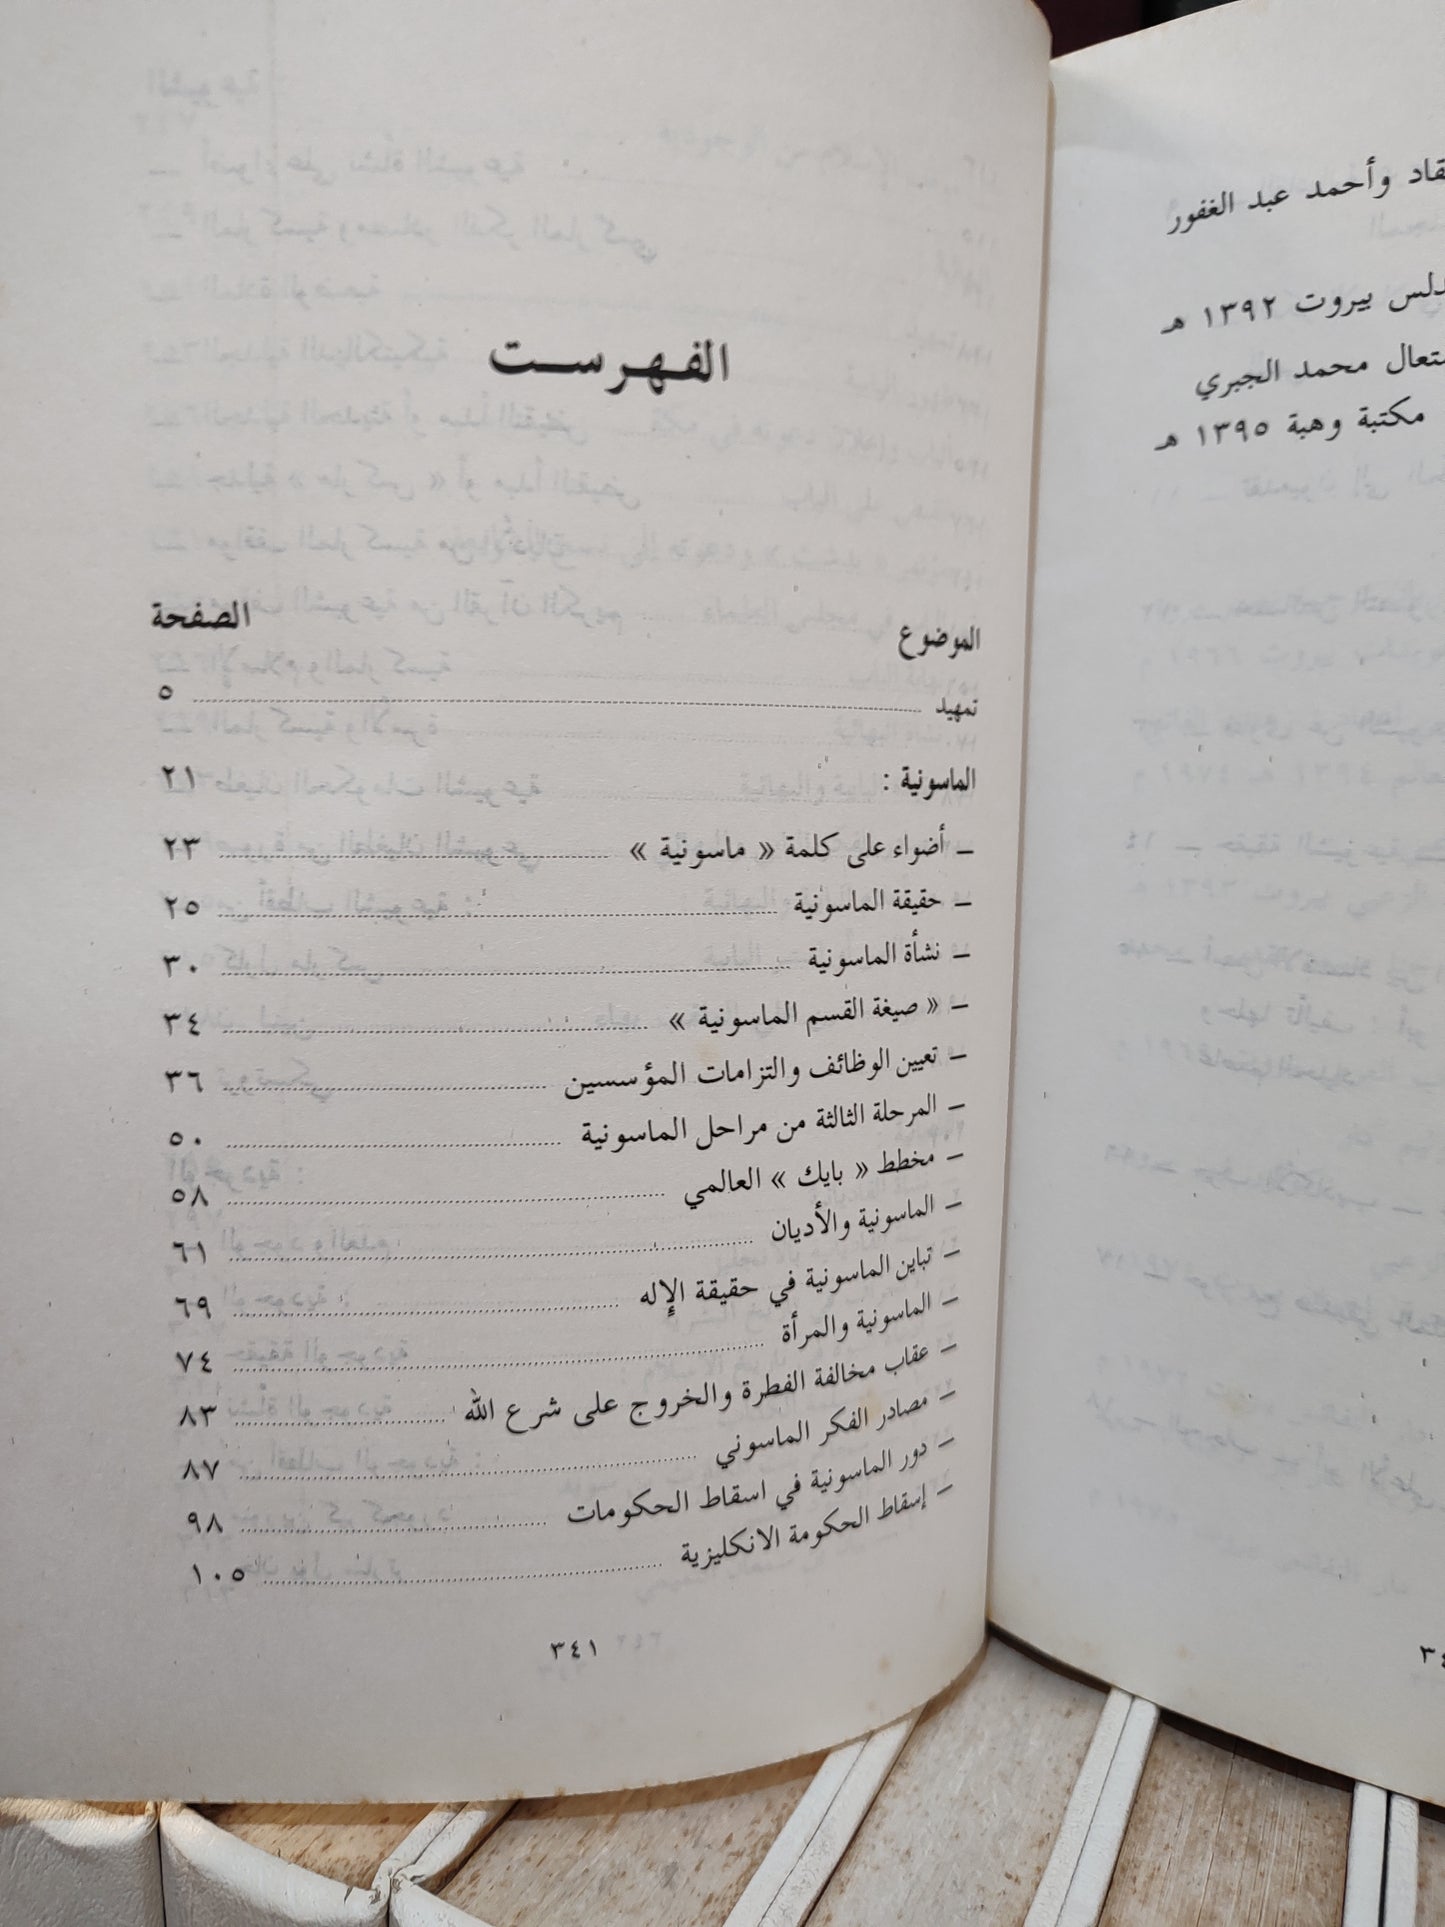 قاد وأحمد عبد الغفور
دلس بيروت ١٣٩٢ هـ
تعال محمد الجبري
مكتبة وهبة ١٣٩٥ هـ
الفهرست
الموضوع الصفحة
تمهيد ٥
الماسونية : ٢١
– أضواء على كلمة « ماسونية » ٢٣
– حقيقة الماسونية ٢٥
– نشأة الماسونية ٣٠
– « صيغة القسم الماسونية » ٣٤
– تعيين الوظائف والتزامات المؤسسين ٣٦
– المرحلة الثالثة من مراحل الماسونية ٥٠
– مخطط « بايك » العالمي ٥٨
– الماسونية والأديان ٦١
– تباين الماسونية في حقيقة الإله ٦٩
– الماسونية والمرأة ٧٤
– عقاب مخالفة الفطرة والخروج على شرع الله ٨٣
– مصادر الفكر الماسوني ٨٧
– دور الماسونية في اسقاط الحكومات ٩٨
– إسقاط الحكومة الانكليزية ١٠٥
٣٤١